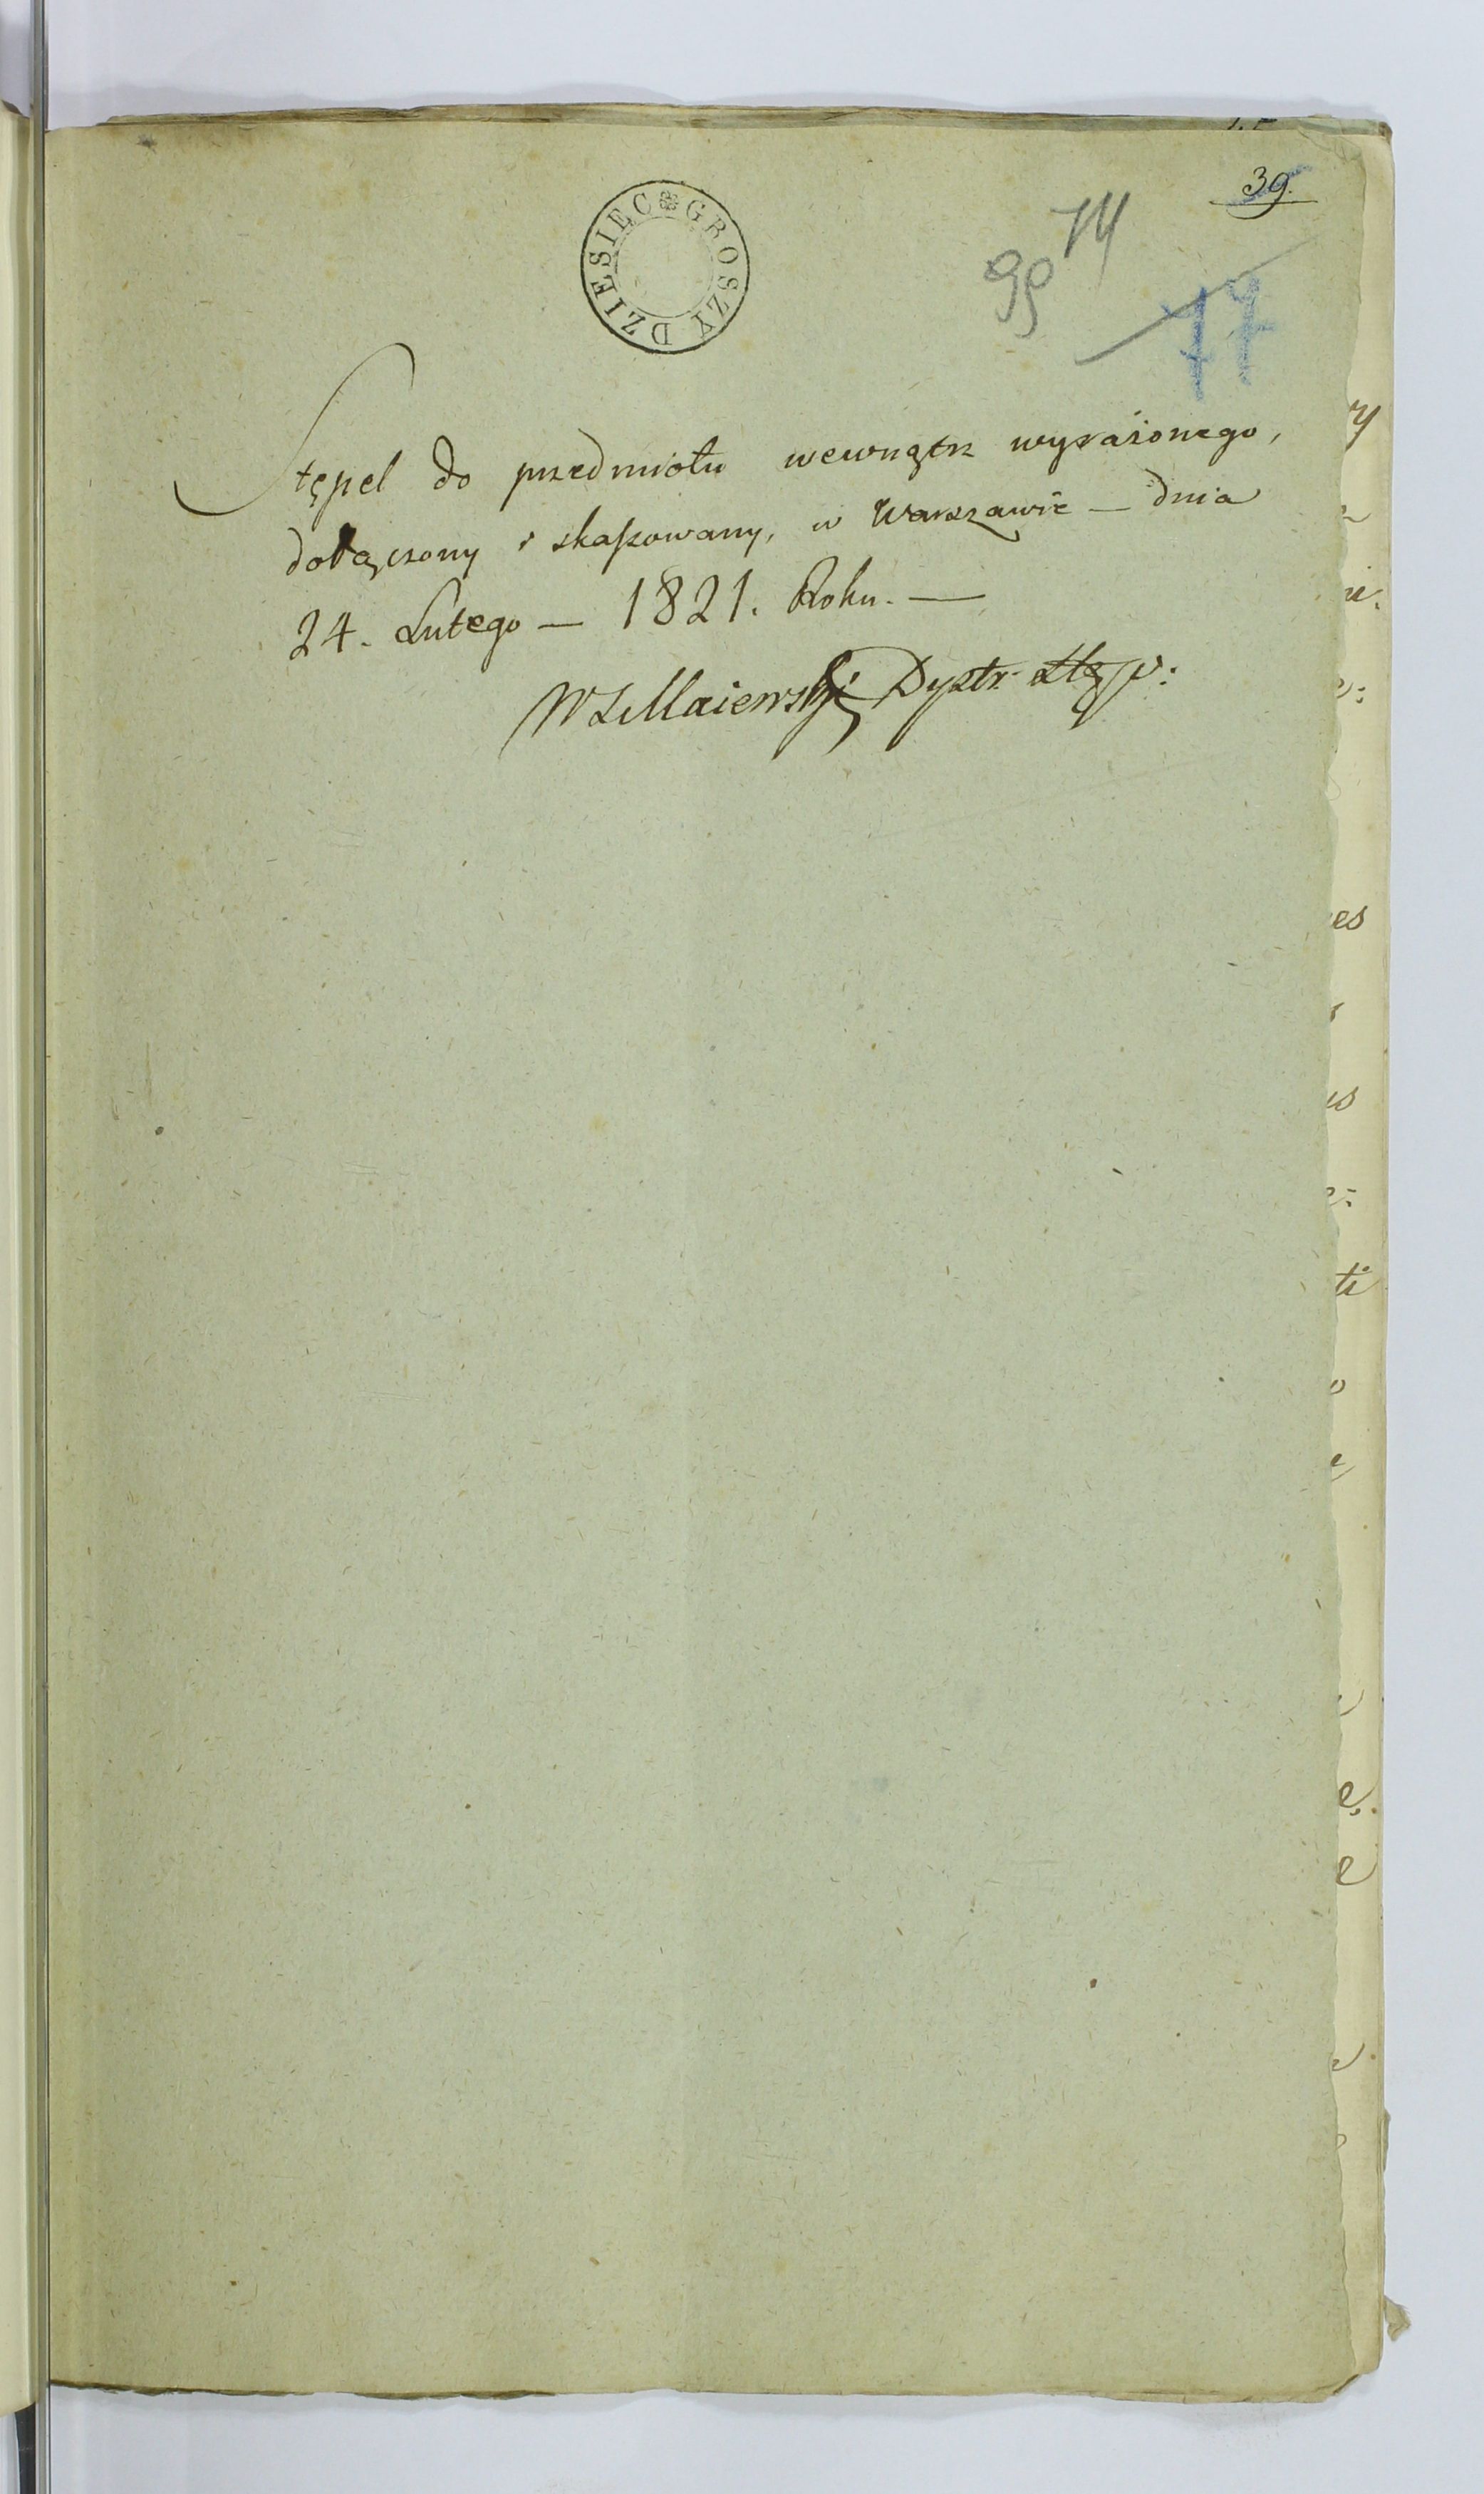 39.
74
99
77
DZIESIEC GROSZY
Stępel do przedmiotu wewnątrz wyrażonego,
dołączony i skassowany, w Warszawie — dnia
24. Lutego — 1821. Roku. —
W S Maiewski Dystr. Stęp: